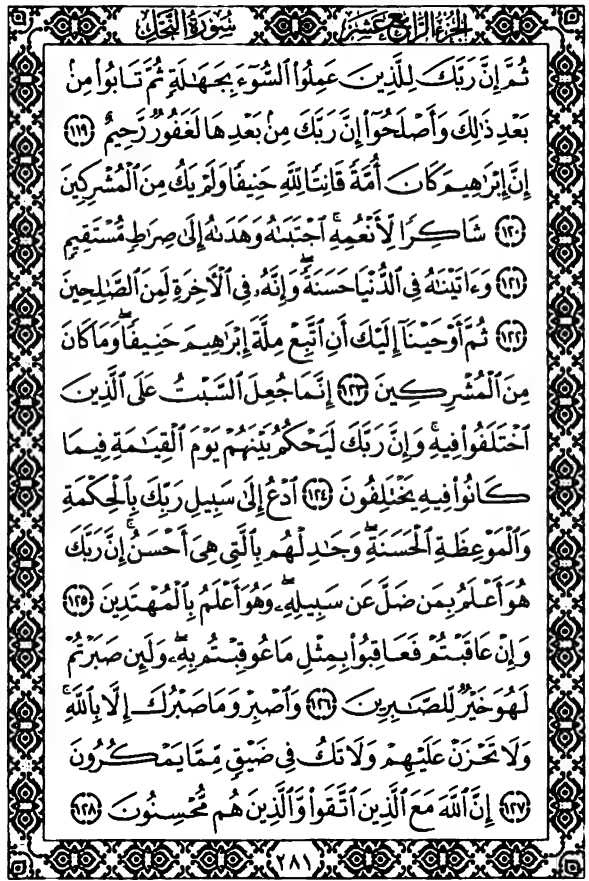 الجزء الرابع عشر
سورة النحل
ثُمَّ إِنَّ رَبَّكَ لِلَّذِينَ عَمِلُوا۟ ٱلسُّوٓءَ بِجَهَٰلَةٍ ثُمَّ تَابُوا۟ مِنۢ
بَعْدِ ذَٰلِكَ وَأَصْلَحُوٓا۟ إِنَّ رَبَّكَ مِنۢ بَعْدِهَا لَغَفُورٌ رَّحِيمٌ ﴿١١٩﴾
إِنَّ إِبْرَٰهِيمَ كَانَ أُمَّةً قَانِتًا لِّلَّهِ حَنِيفًا وَلَمْ يَكُ مِنَ ٱلْمُشْرِكِينَ
﴿١٢٠﴾ شَاكِرًا لِّأَنْعُمِهِ ۚ ٱجْتَبَىٰهُ وَهَدَىٰهُ إِلَىٰ صِرَٰطٍ مُّسْتَقِيمٍ
﴿١٢١﴾ وَءَاتَيْنَٰهُ فِى ٱلدُّنْيَا حَسَنَةً ۖ وَإِنَّهُۥ فِى ٱلْءَاخِرَةِ لَمِنَ ٱلصَّٰلِحِينَ
﴿١٢٢﴾ ثُمَّ أَوْحَيْنَآ إِلَيْكَ أَنِ ٱتَّبِعْ مِلَّةَ إِبْرَٰهِيمَ حَنِيفًا ۖ وَمَا كَانَ
مِنَ ٱلْمُشْرِكِينَ ﴿١٢٣﴾ إِنَّمَا جُعِلَ ٱلسَّبْتُ عَلَى ٱلَّذِينَ
ٱخْتَلَفُوا۟ فِيهِ ۚ وَإِنَّ رَبَّكَ لَيَحْكُمُ بَيْنَهُمْ يَوْمَ ٱلْقِيَٰمَةِ فِيمَا
كَانُوا۟ فِيهِ يَخْتَلِفُونَ ﴿١٢٤﴾ ٱدْعُ إِلَىٰ سَبِيلِ رَبِّكَ بِٱلْحِكْمَةِ
وَٱلْمَوْعِظَةِ ٱلْحَسَنَةِ ۖ وَجَٰدِلْهُم بِٱلَّتِى هِىَ أَحْسَنُ ۚ إِنَّ رَبَّكَ
هُوَ أَعْلَمُ بِمَن ضَلَّ عَن سَبِيلِهِۦ ۖ وَهُوَ أَعْلَمُ بِٱلْمُهْتَدِينَ ﴿١٢٥﴾
وَإِنْ عَاقَبْتُمْ فَعَاقِبُوا۟ بِمِثْلِ مَا عُوقِبْتُم بِهِۦ ۖ وَلَئِن صَبَرْتُمْ
لَهُوَ خَيْرٌ لِّلصَّٰبِرِينَ ﴿١٢٦﴾ وَٱصْبِرْ وَمَا صَبْرُكَ إِلَّا بِٱللَّهِ ۚ
وَلَا تَحْزَنْ عَلَيْهِمْ وَلَا تَكُ فِى ضَيْقٍ مِّمَّا يَمْكُرُونَ
﴿١٢٧﴾ إِنَّ ٱللَّهَ مَعَ ٱلَّذِينَ ٱتَّقَوا۟ وَّٱلَّذِينَ هُم مُّحْسِنُونَ ﴿١٢٨﴾
٢٨١